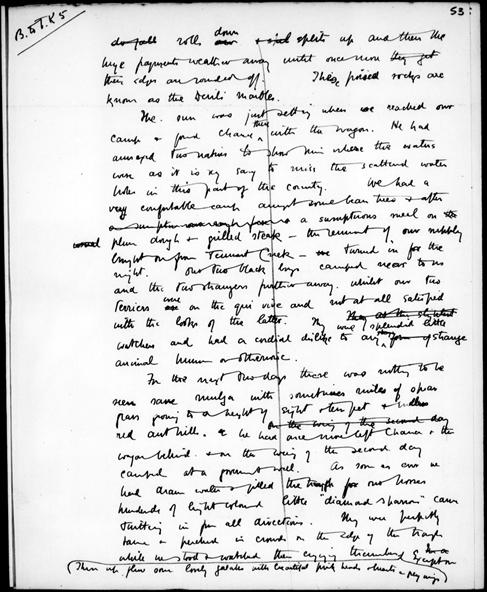 B. to T.K 5
53
rolls down splits up and then the
huge fragments weather away until once more
their edges are rounded off. These poised rocks are
known as the Devil's marbles.
The sun was just setting when we reached our
camp & found Chance there with the wagon. He had
two natives to show him where the waters
were as it is easy to miss the scattered water
holes in this part of the country. We had a
very comfortable camp amongst some bean trees & after
a sumptuous meal on
plum dough & grilled steak – the remnant of our supply
brought on from Tennant Creek – turned in for the
night. Our two black boys camped near to us
and the two strangers further away. whilst our two
terriers were on the qui vive and not at all satisfied
with the looks of the latter. They were splendid little
watchers and had a cordial dislike to any strange
animal human or otherwise.
For the next two days there was nothing to be
seen save mulga with sometimes miles of open
grass growing to a height of eight or ten feet & endless
red ant hills. We had left Chance & the
wagon behind & on the evening of the second day
camped at a well. As soon as ever we
had drawn water & filled the trough for our horses
hundreds of light coloured little "diamond sparrows" came
flitting in from all directions. They were perfectly
tame & perched in crowds on the edge of the trough
while we stood & watched them enjoying themselves
(Then up flew some lovely galahs with beautiful pink heads & breasts & grey wings)